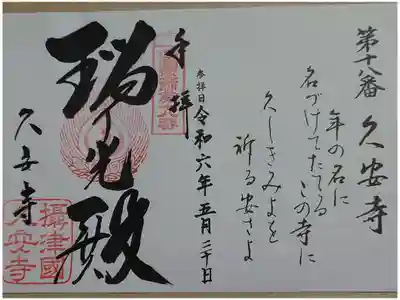 第十八番 久安寺
年の名に
名づけてたてる
この寺に
久しきみよを
祈る安さよ
参拝日 令和六年五月三十日
奉拝
瑞光殿
久安寺
攝津國
久安寺